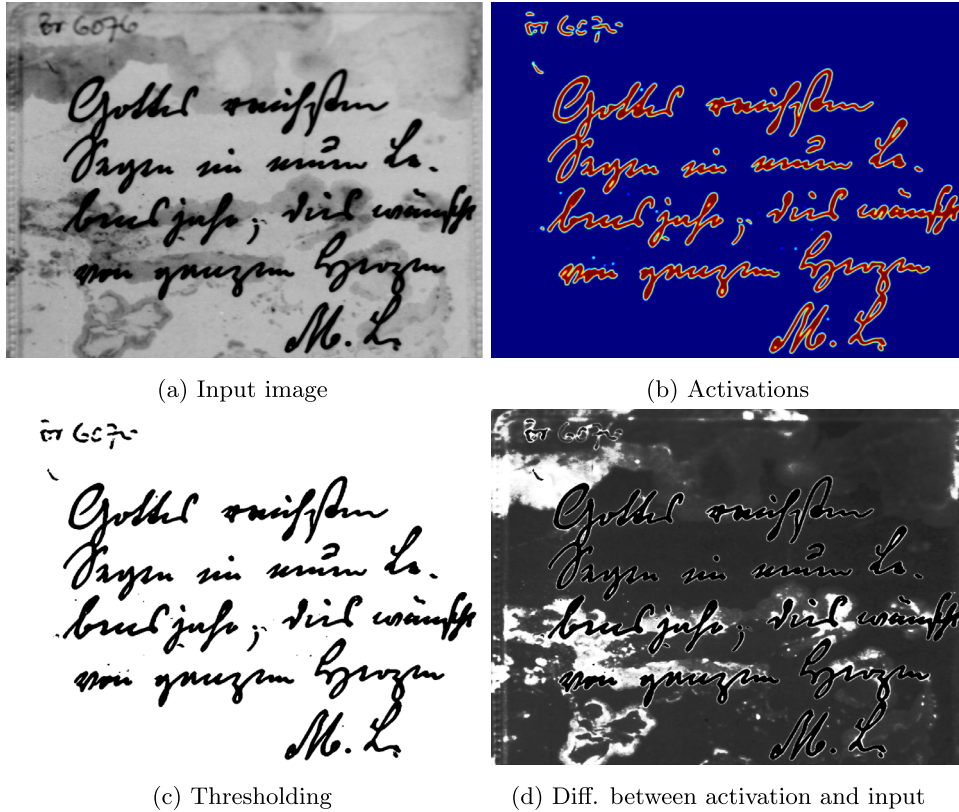 6076
Gottes reichsten
Segen im neuen Le-
bensjahr, dies wünscht
von ganzem Herzen
M. L.
Gottes reichsten
Segen im neuen Le-
bensjahr, dies wünscht
von ganzem Herzen
M. L.
(a) Input image
(b) Activations
Gottes reichsten
Segen im neuen Le-
bensjahr, dies wünscht
von ganzem Herzen
M. L.
Gottes reichsten
Segen im neuen Le-
bensjahr, dies wünscht
von ganzem Herzen
M. L.
(c) Thresholding
(d) Diff. between activation and input